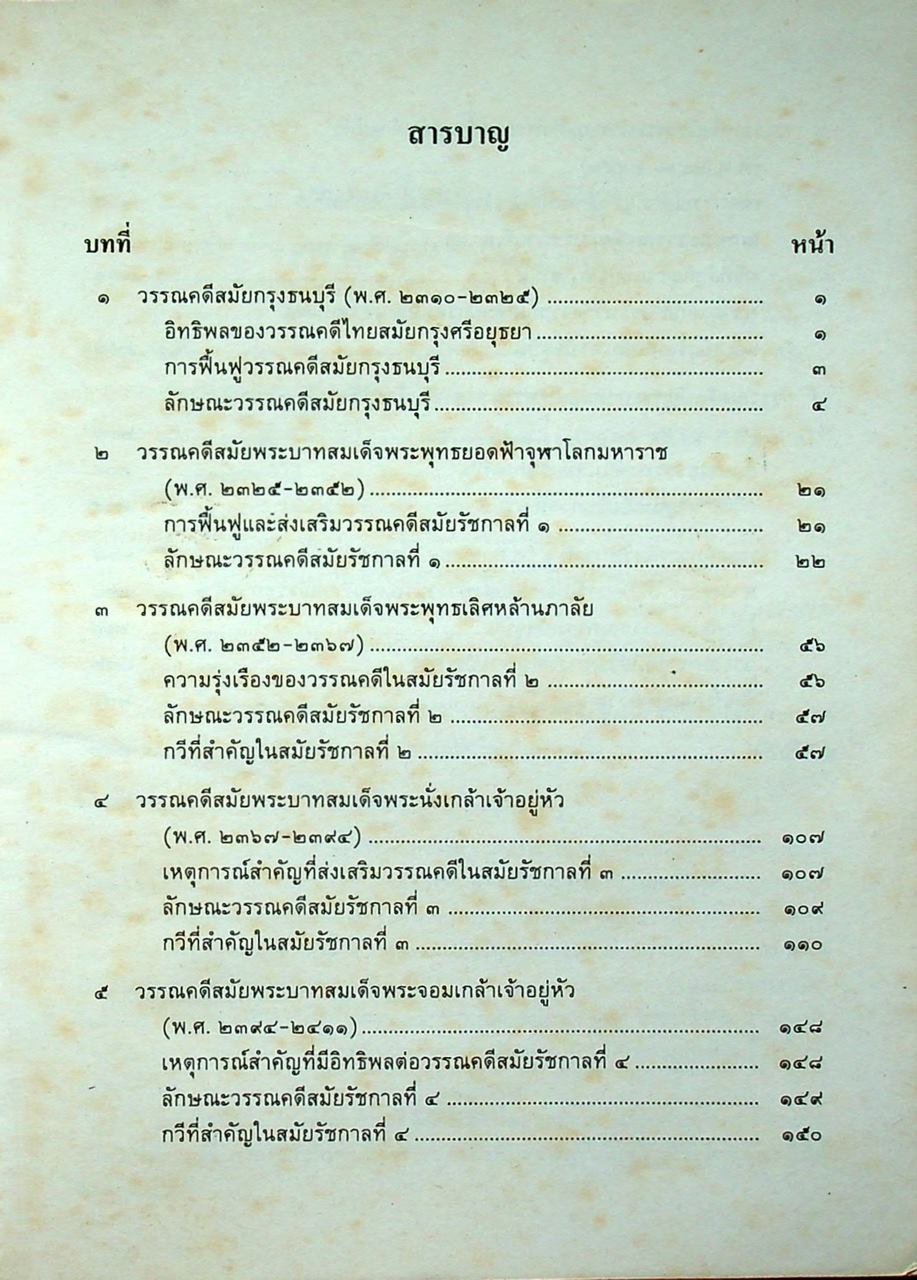 สารบาญ
บทที่ หน้า
๑ วรรณคดีสมัยกรุงธนบุรี (พ.ศ. ๒๓๑๐-๒๓๒๕) ........................................ ๑
อิทธิพลของวรรณคดีไทยสมัยกรุงศรีอยุธยา ........................................ ๑
การฟื้นฟูวรรณคดีสมัยกรุงธนบุรี ........................................ ๓
ลักษณะวรรณคดีสมัยกรุงธนบุรี ........................................ ๔
๒ วรรณคดีสมัยพระบาทสมเด็จพระพุทธยอดฟ้าจุฬาโลกมหาราช
(พ.ศ. ๒๓๒๕-๒๓๕๒) ........................................ ๒๑
การฟื้นฟูและส่งเสริมวรรณคดีสมัยรัชกาลที่ ๑ ........................................ ๒๑
ลักษณะวรรณคดีสมัยรัชกาลที่ ๑ ........................................ ๒๒
๓ วรรณคดีสมัยพระบาทสมเด็จพระพุทธเลิศหล้านภาลัย
(พ.ศ. ๒๓๕๒-๒๓๖๗) ........................................ ๕๖
ความรุ่งเรืองของวรรณคดีในสมัยรัชกาลที่ ๒ ........................................ ๕๖
ลักษณะวรรณคดีสมัยรัชกาลที่ ๒ ........................................ ๕๗
กวีที่สำคัญในสมัยรัชกาลที่ ๒ ........................................ ๕๗
๔ วรรณคดีสมัยพระบาทสมเด็จพระนั่งเกล้าเจ้าอยู่หัว
(พ.ศ. ๒๓๖๗-๒๓๙๔) ........................................ ๑๐๗
เหตุการณ์สำคัญที่ส่งเสริมวรรณคดีในสมัยรัชกาลที่ ๓ ........................................ ๑๐๗
ลักษณะวรรณคดีสมัยรัชกาลที่ ๓ ........................................ ๑๐๙
กวีที่สำคัญในสมัยรัชกาลที่ ๓ ........................................ ๑๑๐
๕ วรรณคดีสมัยพระบาทสมเด็จพระจอมเกล้าเจ้าอยู่หัว
(พ.ศ. ๒๓๙๔-๒๔๑๑) ........................................ ๑๔๘
เหตุการณ์สำคัญที่มีอิทธิพลต่อวรรณคดีสมัยรัชกาลที่ ๔ ........................................ ๑๔๘
ลักษณะวรรณคดีสมัยรัชกาลที่ ๔ ........................................ ๑๔๙
กวีที่สำคัญในสมัยรัชกาลที่ ๔ ........................................ ๑๕๐